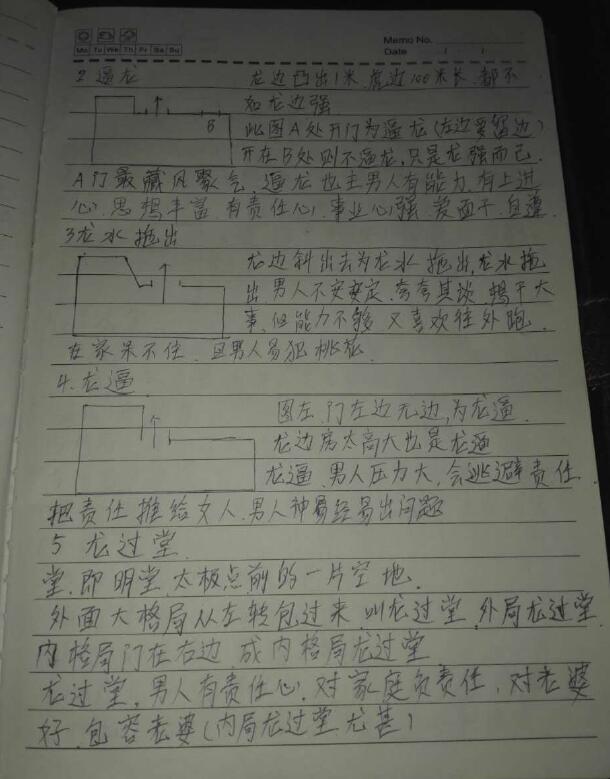 Memo No.
Mo Tu We Th Fr Sa Su
Date / /
2 逼龙 龙边凸出1米,虎边100米长,都不
如龙边强
此图A处开门为逼龙(左边要留边)
B
开在B处则不逼龙,只是龙强而己.
A门最藏风聚气,逼龙也主男人有能力,有上进
心,思想丰富,有责任心,事业心强,爱面子,自尊
3龙水拖出
龙边斜出去为龙水拖出,龙水拖
出男人不安定,夸夸其谈,想干大
事,但能力不够,又喜欢往外跑,
在家呆不住,且男人易犯桃花.
4.龙逼
图左,门左边无边,为龙逼
龙边房太高大也是龙逼
龙逼,男人压力大,会逃避责任
把责任推给女人,男人神易出问题
5 龙过堂
堂,即明堂,太极点前的一片空地.
外面大格局从左转包过来,叫龙过堂,外局龙过堂
内格局门在右边,成内格局龙过堂
龙过堂,男人有责任心,对家庭负责任,对老婆
好,包容老婆(内局龙过堂尤甚)